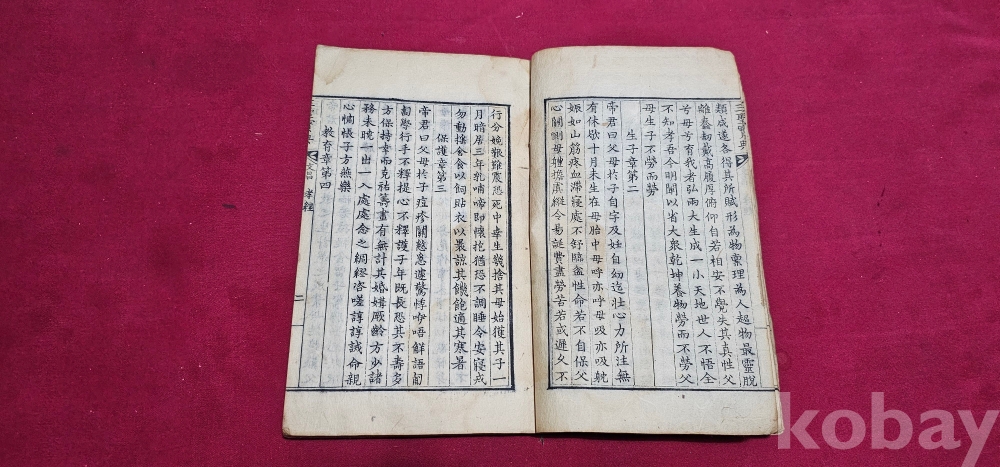 三聖寶典
類成遂各得其所賦形為物稟理為人超物最靈脫
離蠢劫戴高履厚俯仰自若相安不覺失其真性父
兮母兮育我者弘兩大生成一小天地世人不悟全
不知考吾今明闡以省大衆乾坤養物勞而不勞父
母生子不勞而勞
生子章第二
帝君曰父母於子自字及妊自幼迄壯心力所注無
有休歇十月未生在母胎中母呼亦呼母吸亦吸躭
娠如山筋疼血滯寢處不舒臨盆性命若不自保父
心關惻母體擔虞縱令易誕費盡勞苦若或遲久不
行分娩艱難震恐死中幸生幾捨其母始獲其子一
月暗居三年乳哺啼即懷抱猶恐不調睡令安寢戎
勿動搖食以飼貼衣以最諒其饑飽適其寒暑
保護章第三
帝君曰父母於子痘疹關遽驚悸咿唔鮮語匍
匐學行手不釋提心不釋護子年既長恐其不壽多
方保持幸而克祜籌畫有無計其婚媾厥齡方少諸
務未曉一出一入處處念之綢繆咨嗟諄諄誡命親
心惻悵子方燕樂
教育章第四
孝經
二
kobay